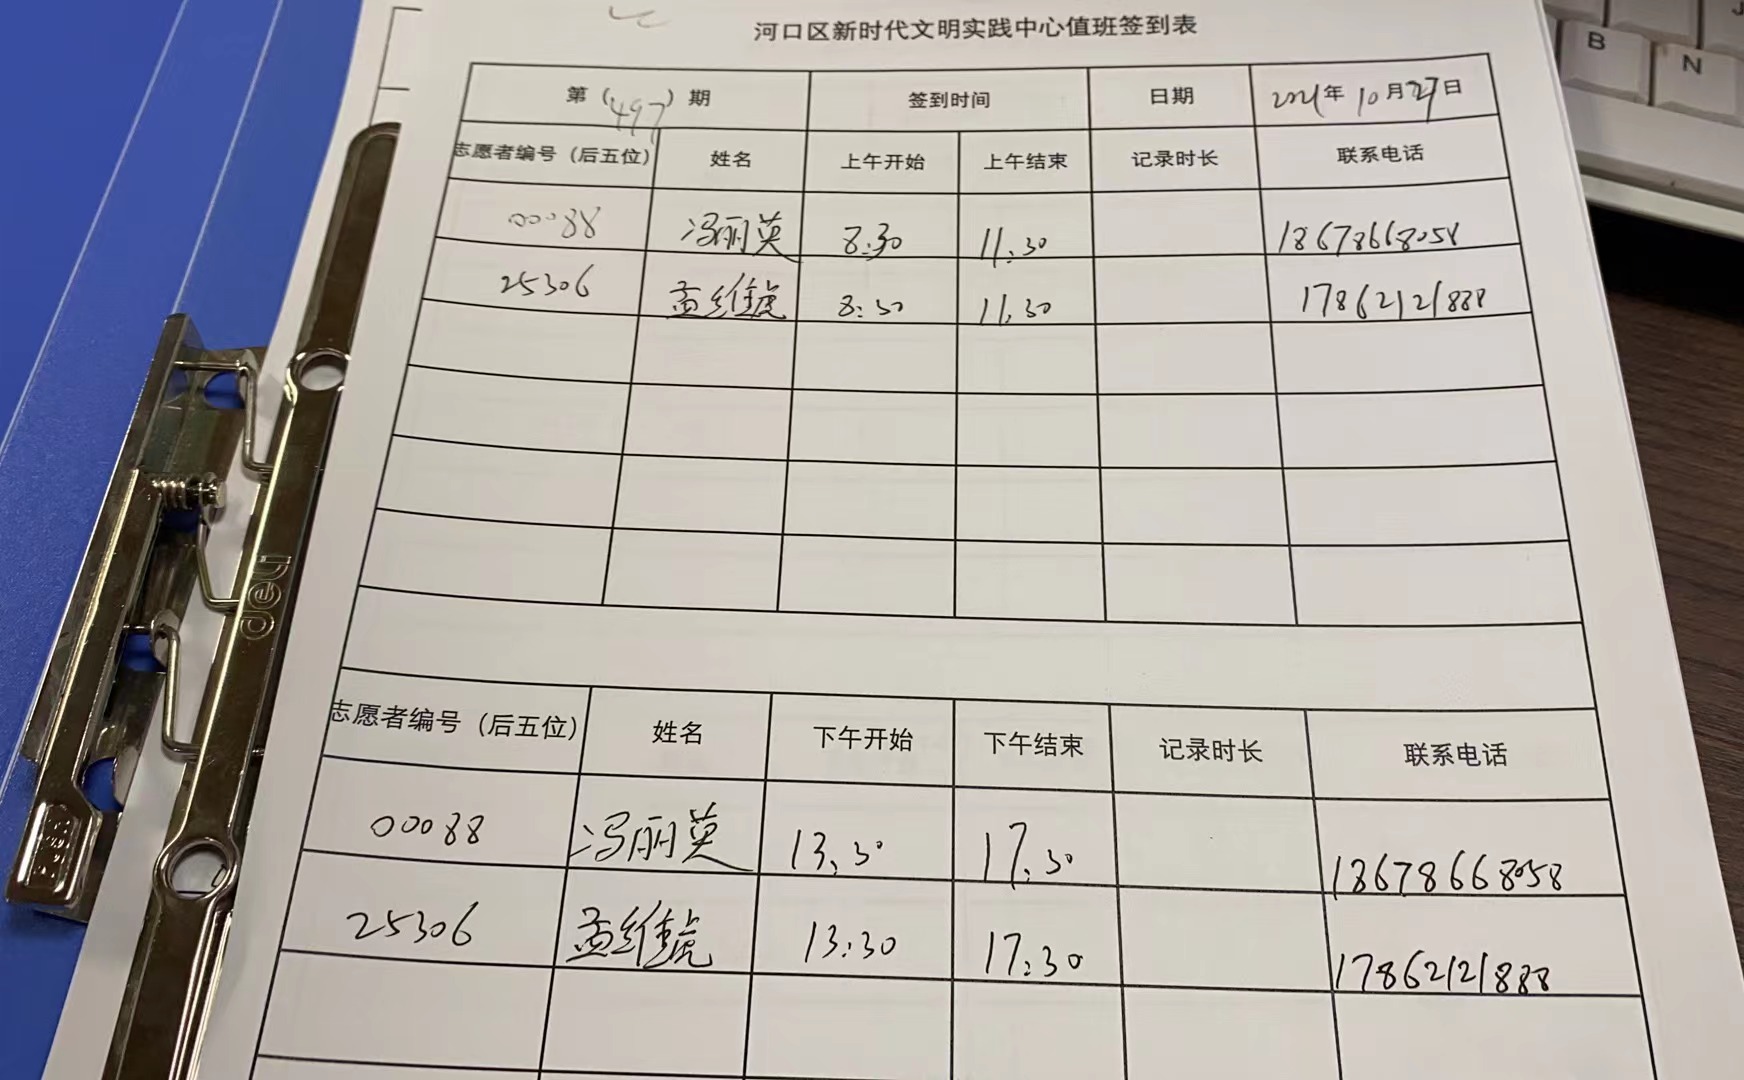 河口区新时代文明实践中心值班签到表
第（497）期 签到时间 日期 2021年10月27日
志愿者编号（后五位） 姓名 上午开始 上午结束 记录时长 联系电话
00088 冯丽英 8:30 11:30 18678668058
25306 孟维虢 8:30 11:30 17862121888
志愿者编号（后五位） 姓名 下午开始 下午结束 记录时长 联系电话
00088 冯丽英 13:30 17:30 18678668058
25306 孟维虢 13:30 17:30 17862121888
hep
B
N